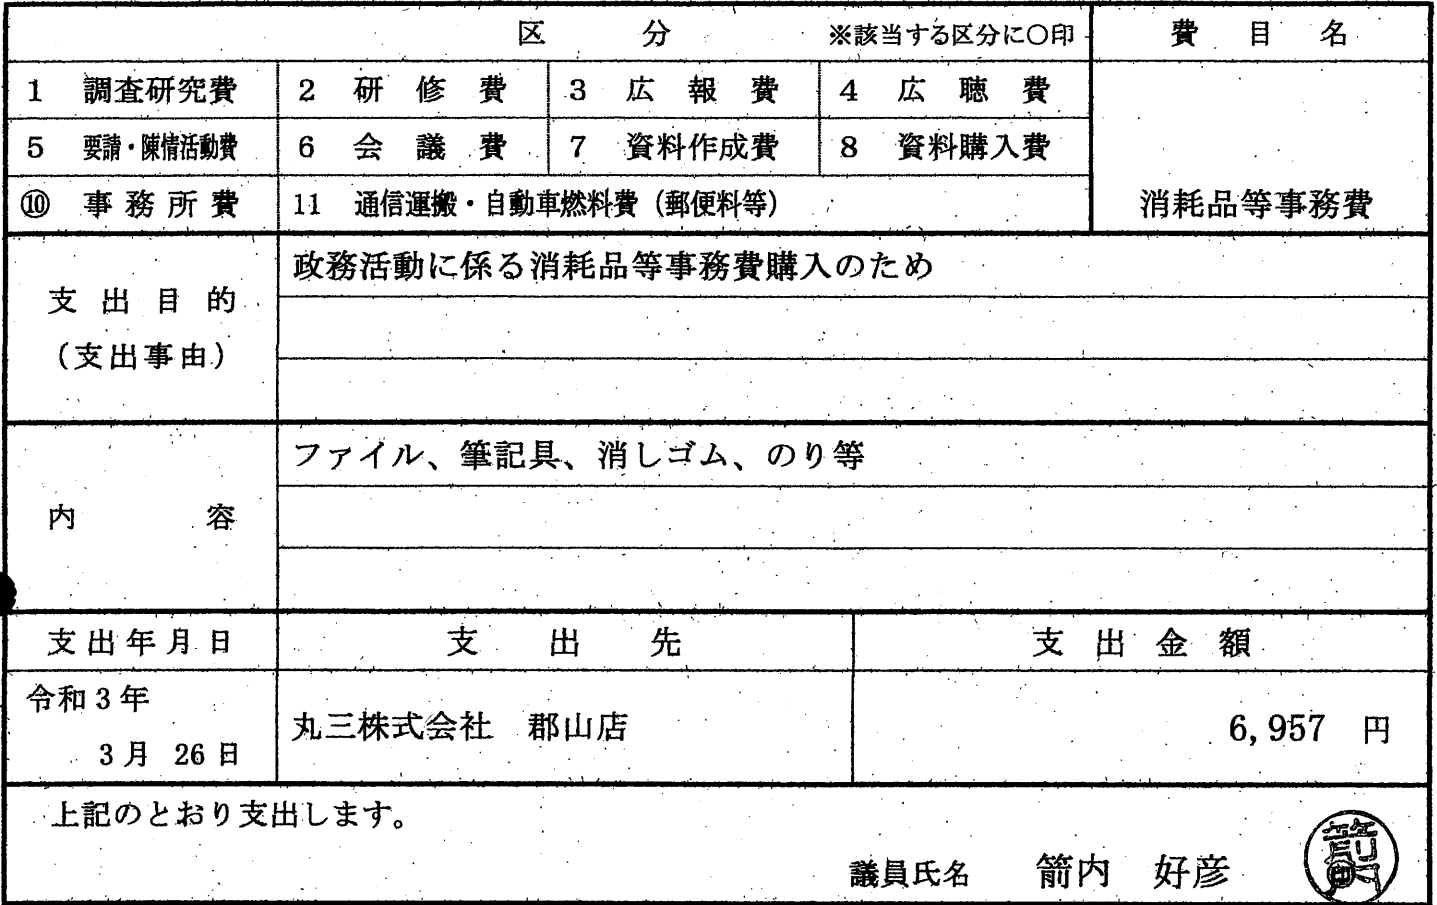 区 分 ※該当する区分に○印 費 目 名
1 調査研究費 2 研 修 費 3 広 報 費 4 広 聴 費
5 要請・陳情活動費 6 会 議 費 7 資料作成費 8 資料購入費
⑩ 事 務 所 費 11 通信運搬・自動車燃料費（郵便料等） 消耗品等事務費
支 出 目 的
（支出事由）
政務活動に係る消耗品等事務費購入のため
内 容
ファイル、筆記具、消しゴム、のり等
支出年月日 支 出 先 支 出 金 額
令和3年
3月 26日
丸三株式会社 郡山店
6,957 円
上記のとおり支出します。
議員氏名 箭内 好彦